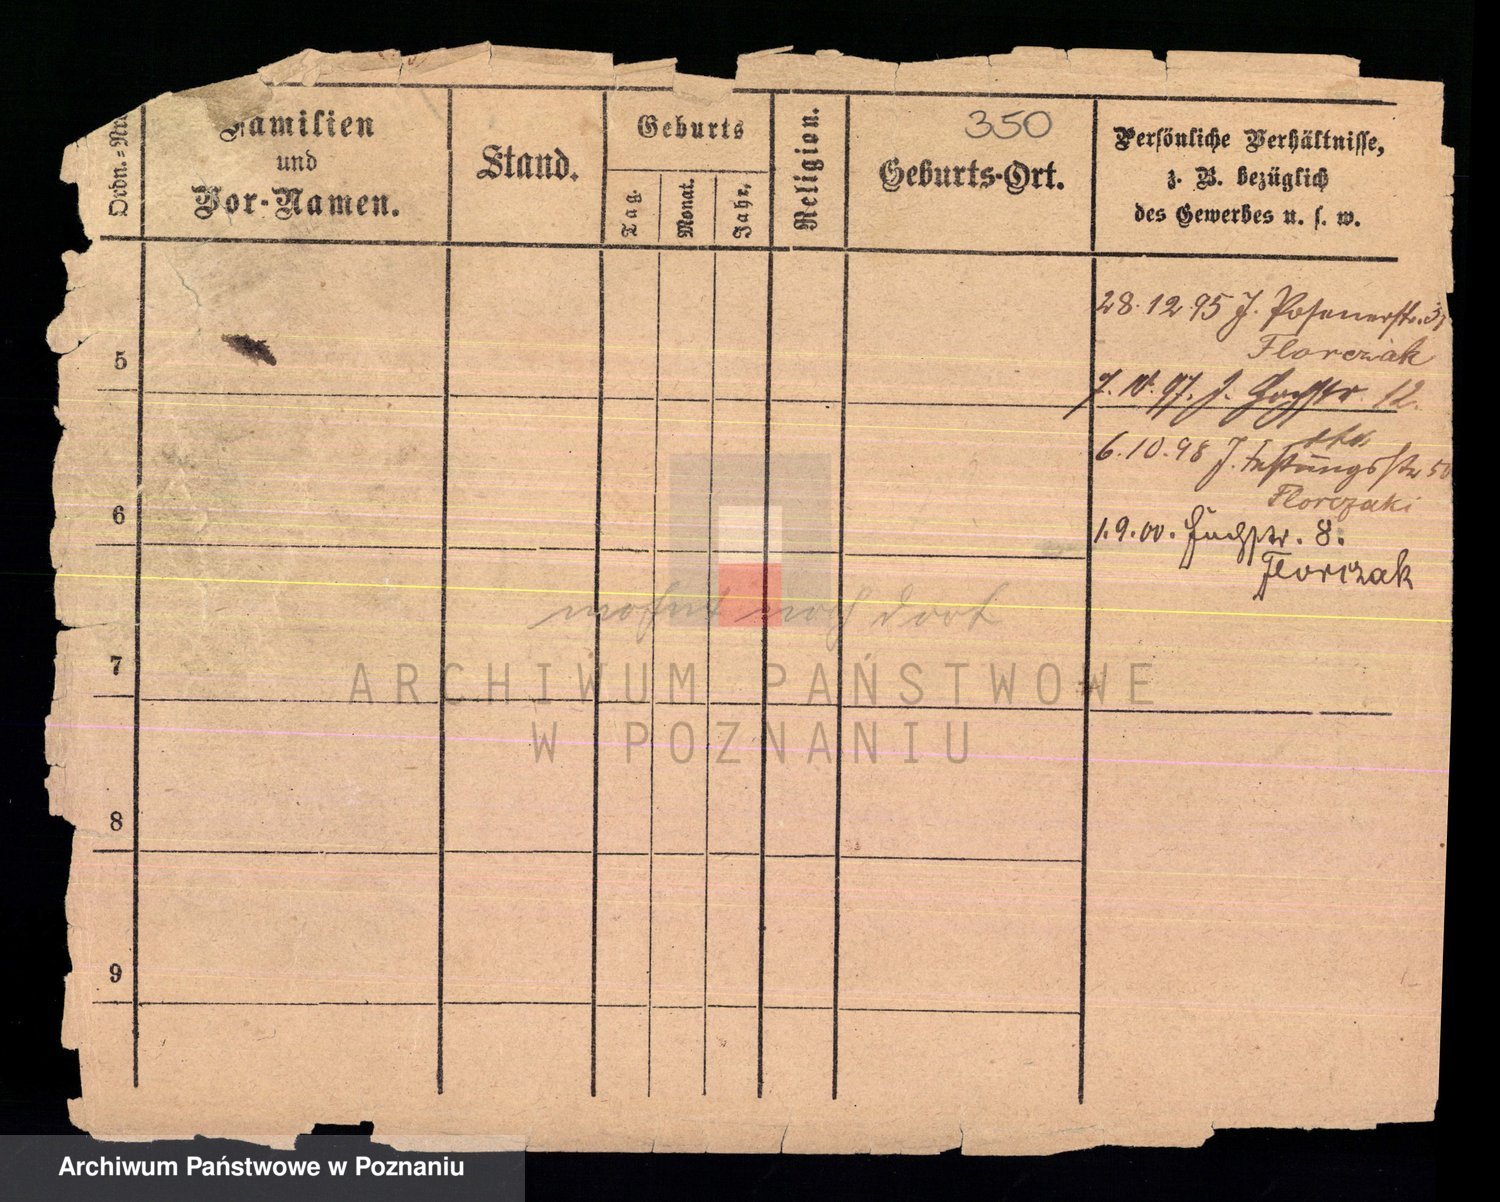 350
Ordn.=Nr.
Familien
und
Vor-Namen.
Stand.
Geburts
Tag.
Monat.
Jahr.
Religion.
Geburts-Ort.
Persönliche Verhältnisse,
z. B. bezüglich
des Gewerbes u. s. w.
28.12.95 J. Posenerstr.
Florczak
5
7.10.97. J. 12.
6.10.98 J. Festungsstr 50
Florczaki
6
1.9.00. 8.
Florczak
wohnt noch dort
7
ARCHIWUM PAŃSTWOWE
W POZNANIU
8
9
Archiwum Państwowe w Poznaniu